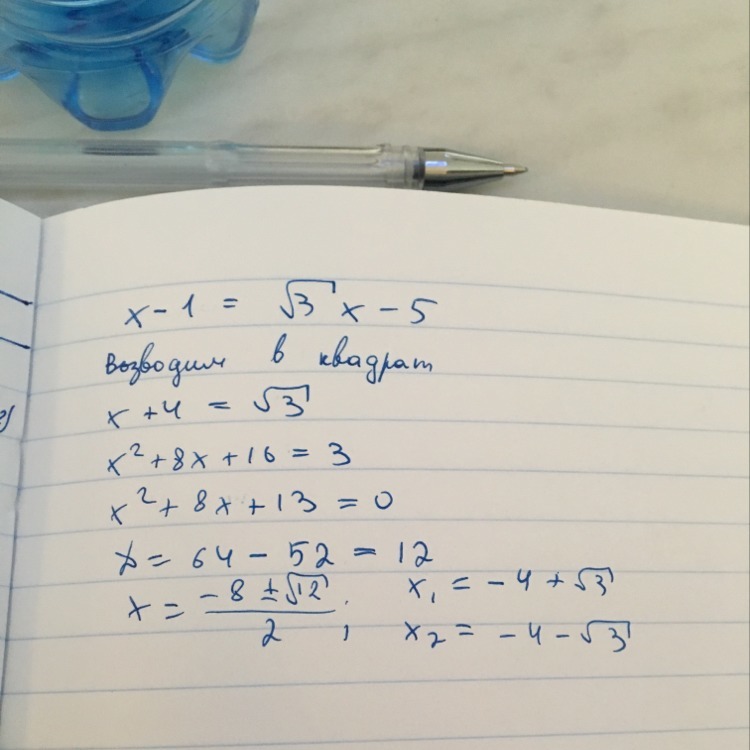 x - 1 = √3 x - 5
Возводим в квадрат
x + 4 = √3
x² + 8x + 16 = 3
x² + 8x + 13 = 0
D = 64 - 52 = 12
x = (-8 ± √12)/2 ; x₁ = -4 + √3
x₂ = -4 - √3